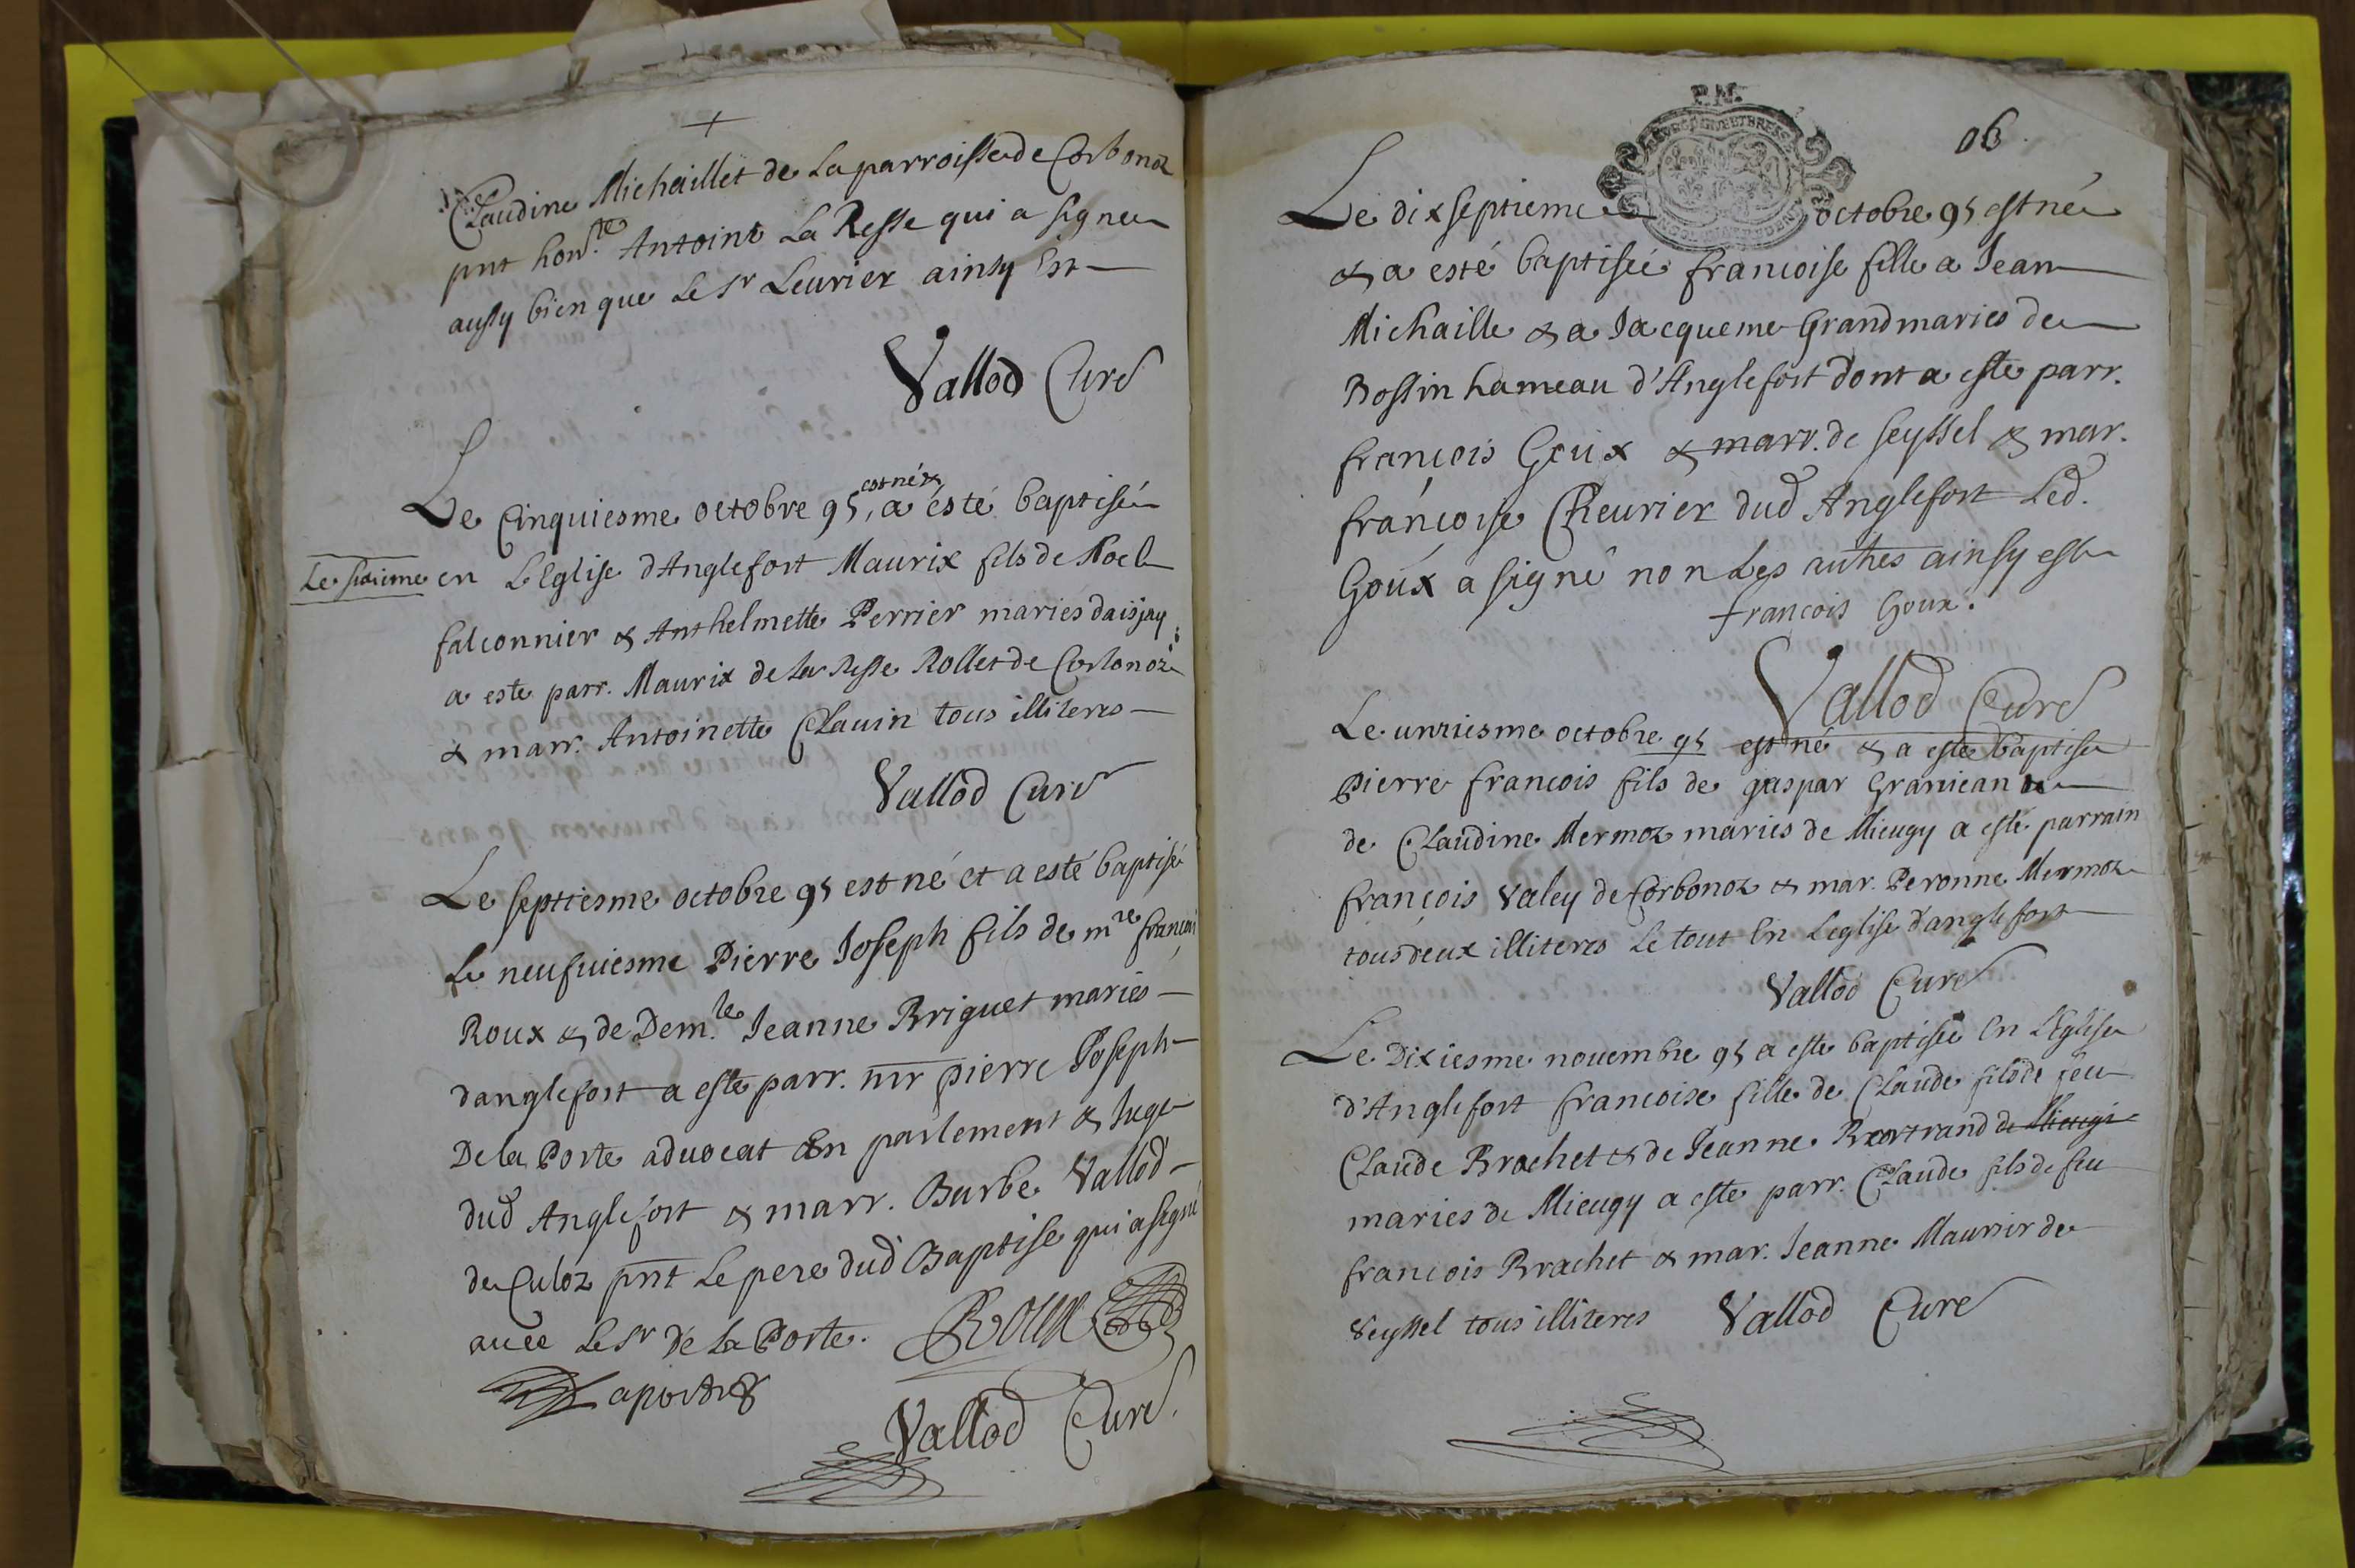 +
Claudine Michaillet de La parroisse de Corbonoz
pnt hon.te Antoine La Resse qui a signe
aussy bien que Le Sr Leurier ainsy Est
Vallod Curé
Le Cinquiesme octobre 95, est né & a esté baptisé
Le sixieme en L'Eglise d'Anglefort Maurix fils de Noel
falconnier & Anthelmette Perrier maries
a este parr. Maurix de La Resse Rollet de Corbonoz
& marr. Antoinette Clauin tous illiteres
Vallod Curé
Le septiesme octobre 95 est né et a esté baptisé
Le neufuiesme Pierre Joseph fils de mre françoi
Roux & de Dem.le Jeanne Briguet mariés
danglefort a este parr. mr pierre Joseph
De la Porte aduocat En parlement & Juge
dud Anglefort & marr. Barbe Vallod
de Culoz pnt Le pere dud Baptise qui a signé
auec Le Sr de La Porte.
Roux
Laporte
Vallod Curé.
P.N.
06.
Le dixseptieme octobre 95 est née
& a esté baptisée francoise fille a Jean
Michaille & a Jacqueme Grand maries de
Bossin hameau d'Anglefort dont a este parr.
françois Goux & marr. de seyssel & mar.
françoise Cheurier dud Anglefort Led.
Goux a signé non Les autres ainsy est
francois Goux.
Vallod Curé
Le unziesme octobre 95 est né & a este baptise
Pierre francois fils de gaspar Granjean &
de Claudine Mermoz maries de Mieugy a este parrain
françois Valey de Corbonoz & mar. Peronne Mermoz
tous deux illiteres Le tout En L'eglise d'anglefort
Vallod Curé
Le Dixiesme nouembre 95 a este baptisée En L'Eglise
d'Anglefort francoise fille de Claude fils de feu
Claude Brachet & de Jeanne Bertrand de Mieugi
maries de Mieugy a este parr. Claude fils de feu
francois Brachet & mar. Jeanne Maurier de
Seyssel tous illiteres Vallod Curé